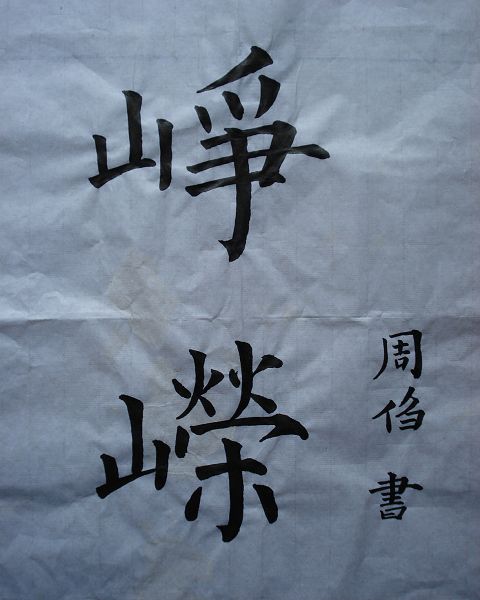 崢
嶸
周 書